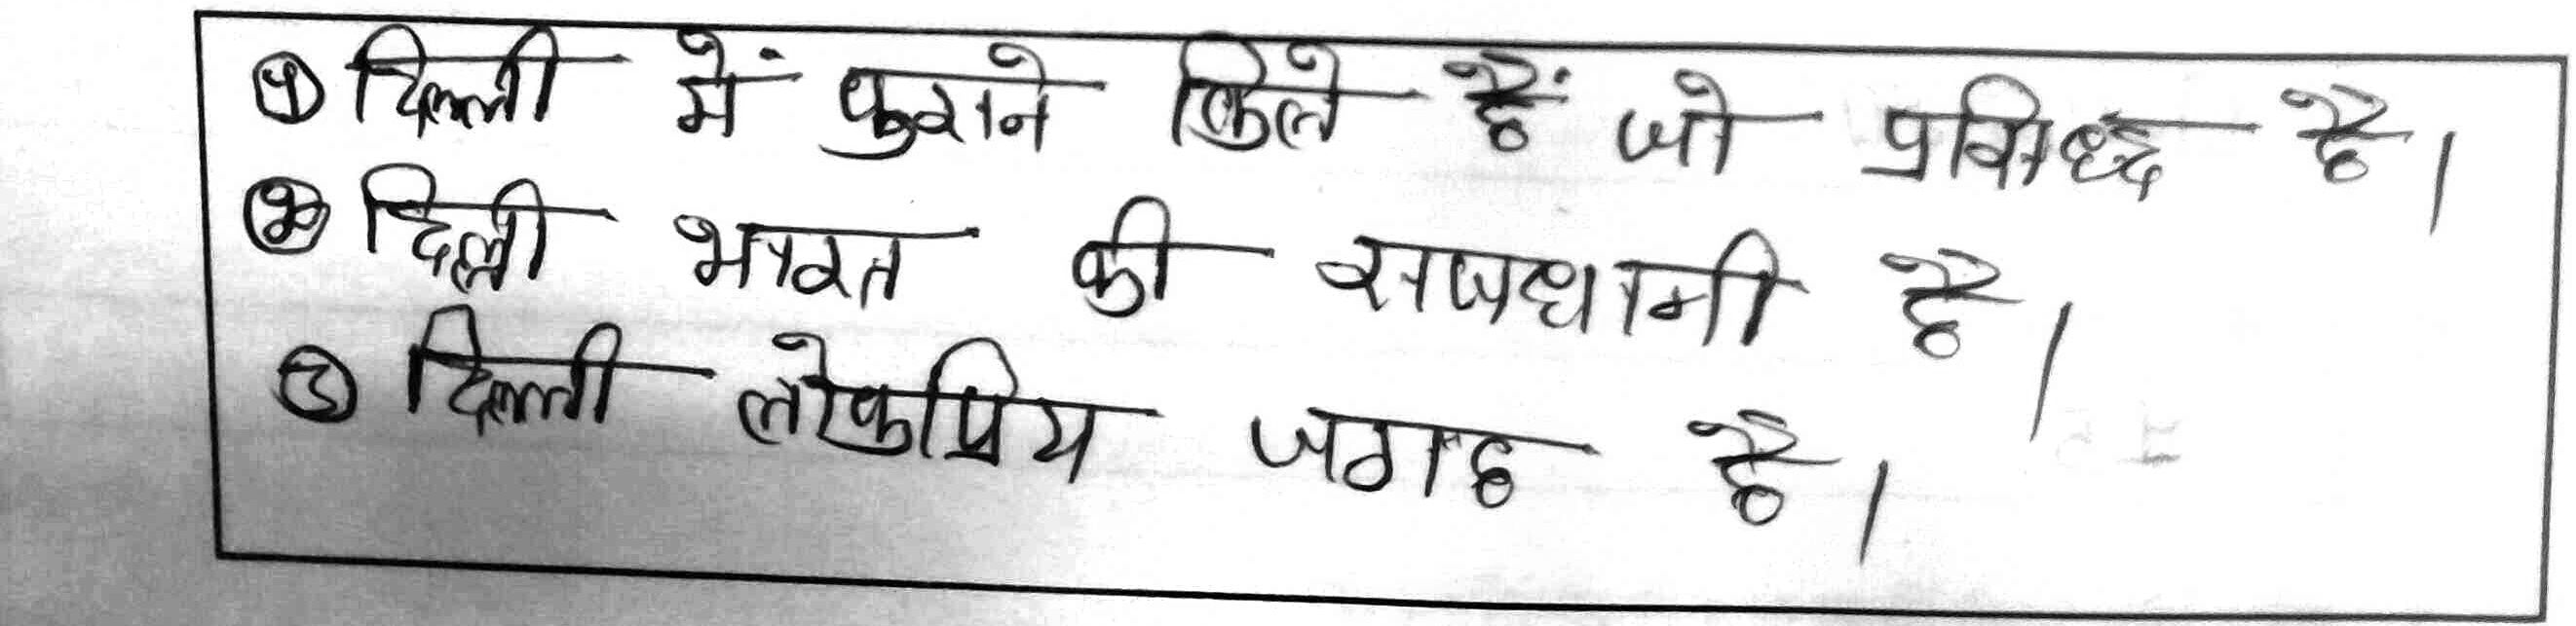 १ दिल्ली में पुराने किले हैं जो प्रसिध्द है।
२ दिल्ली भारत की राजधानी है।
३ दिल्ली लोकप्रिय जगह है।